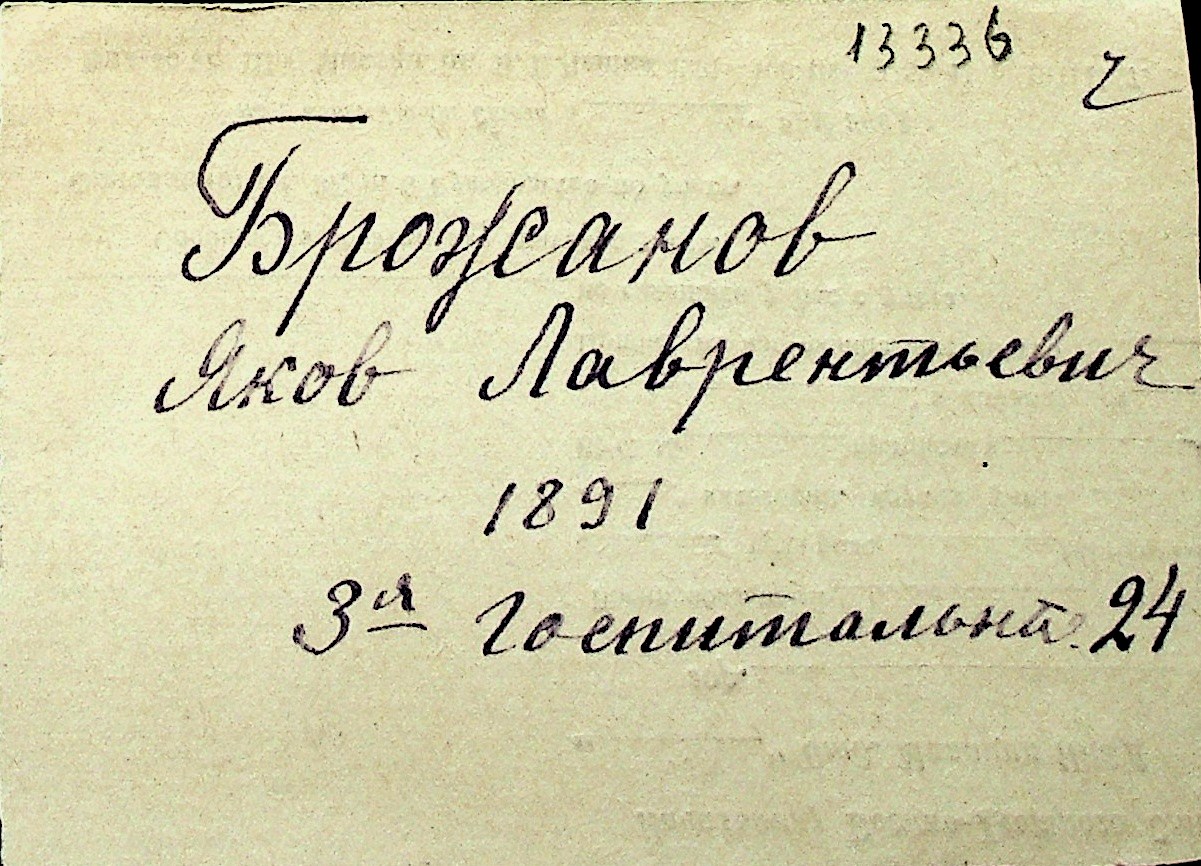 13336 г
Брожанов
Яков Лаврентьевич
1891
3я Госпитальна 24